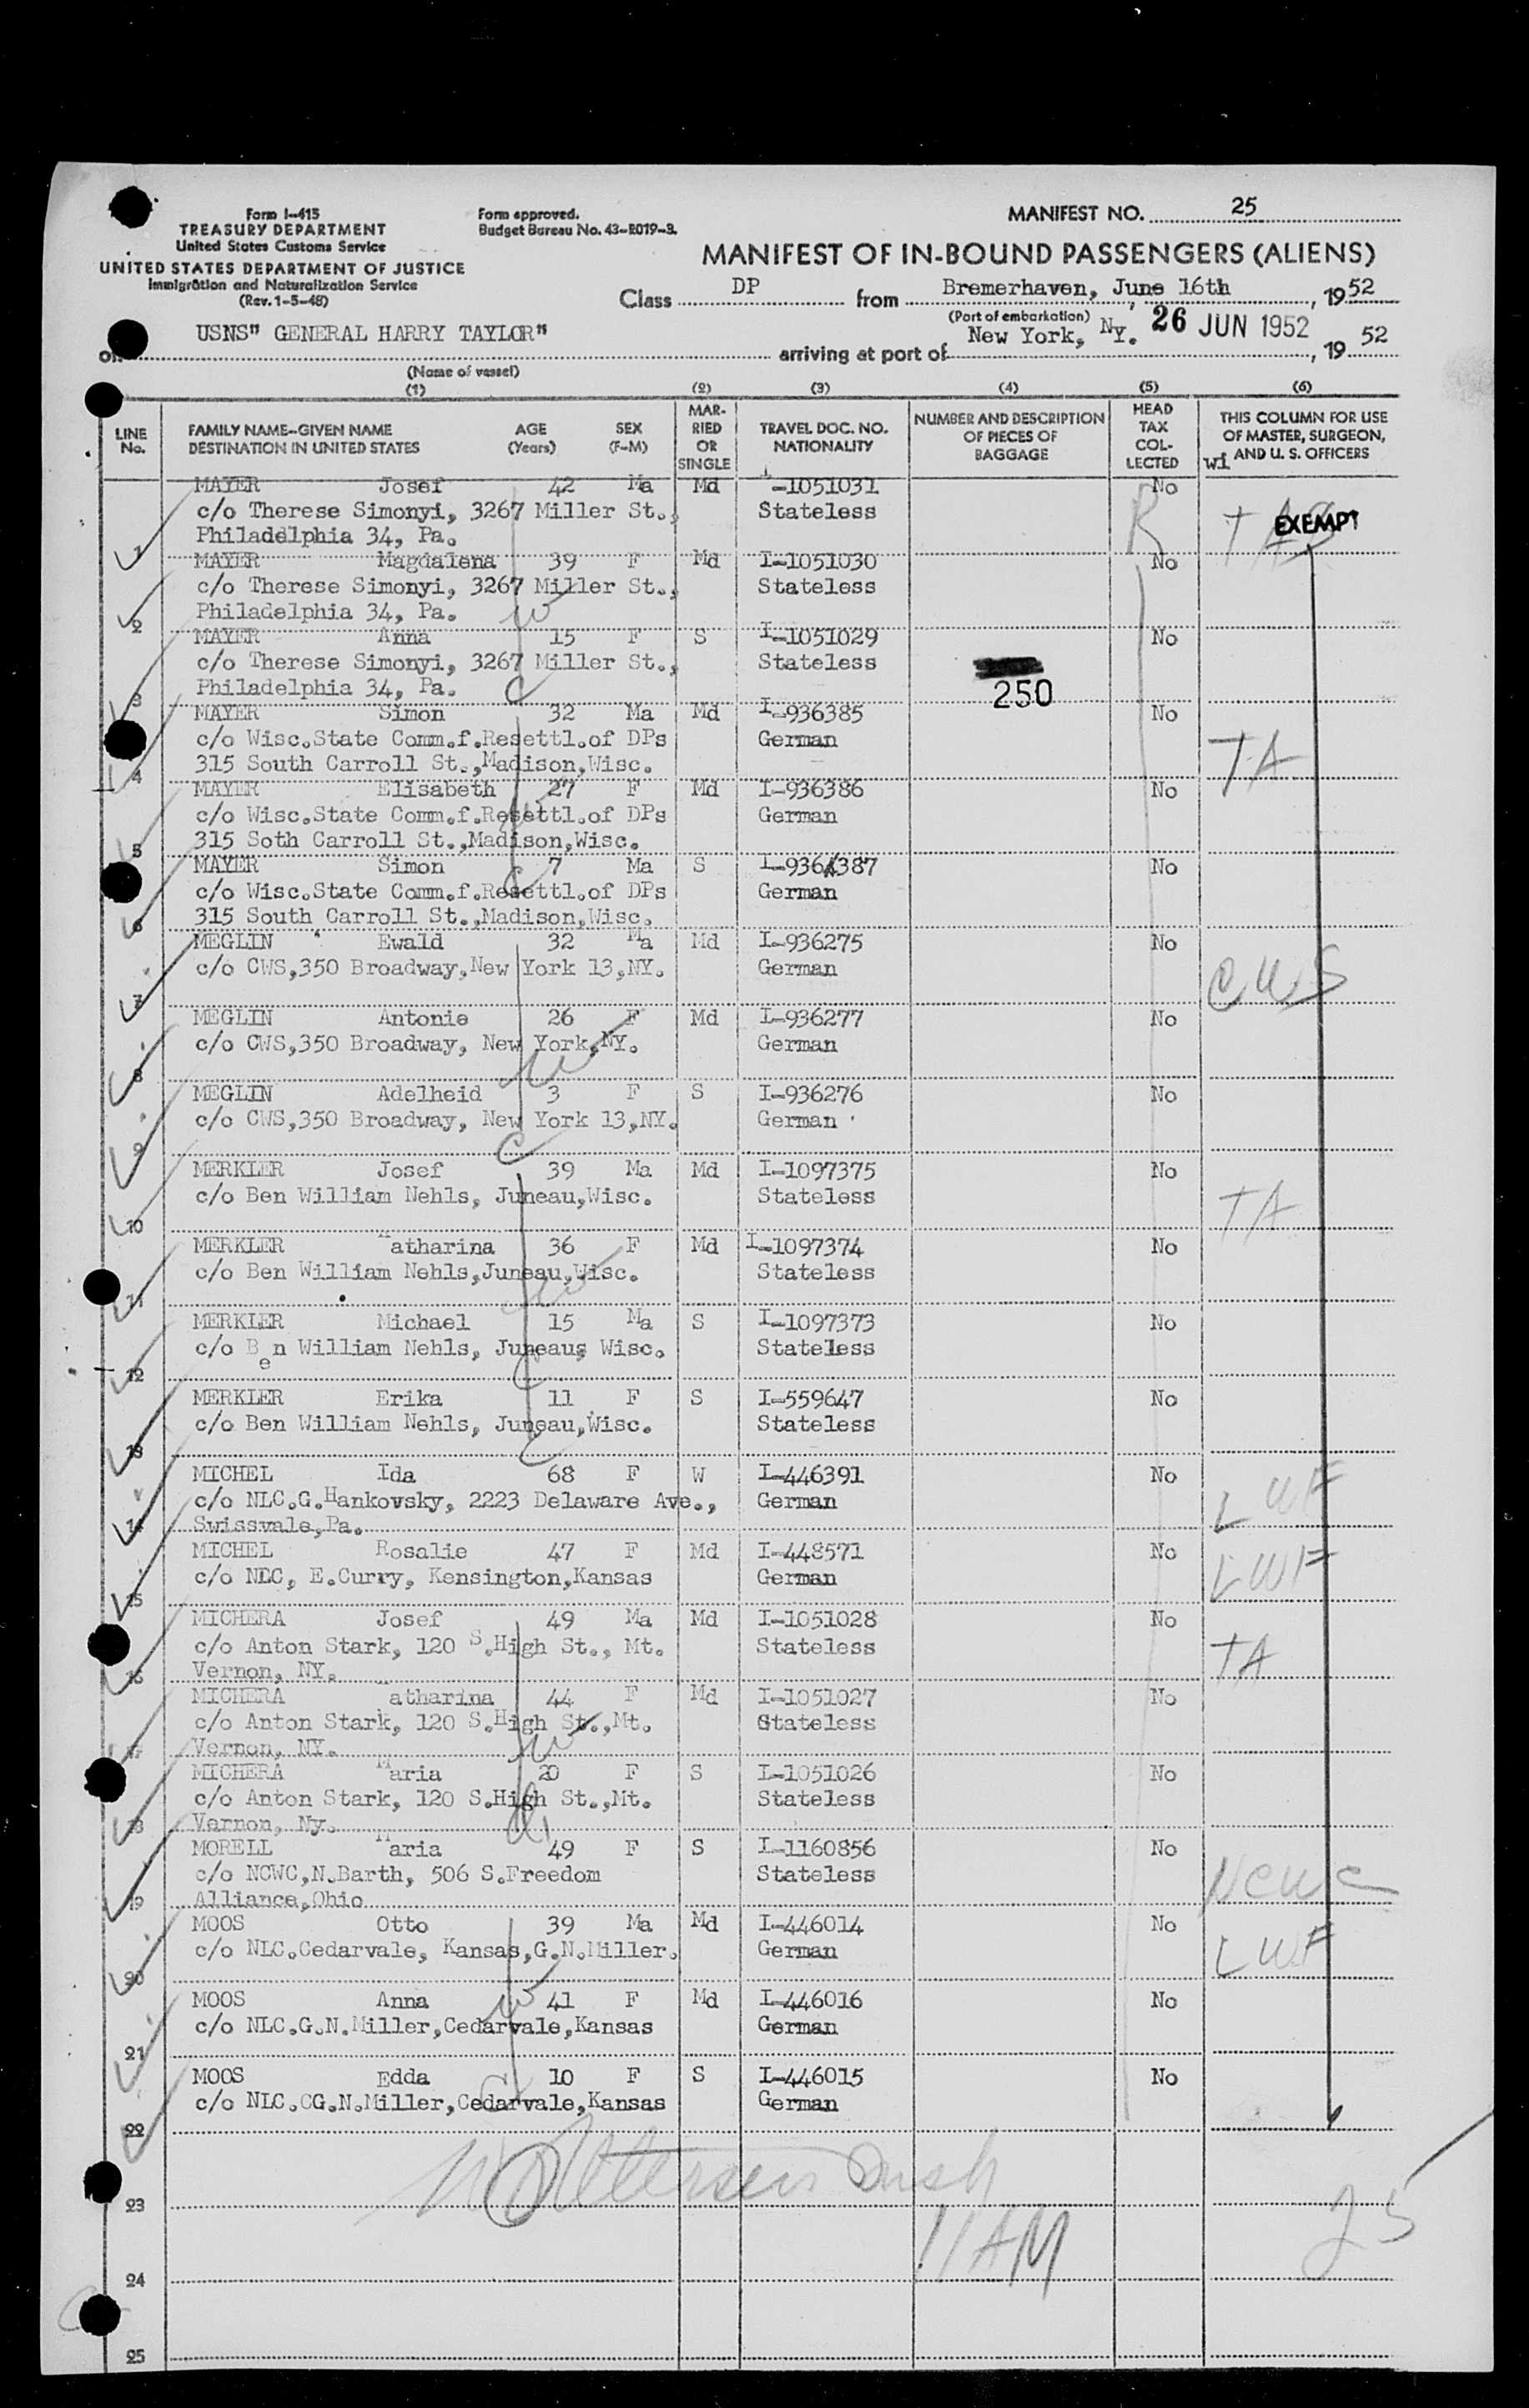 Form I-415
TREASURY DEPARTMENT
United States Customs Service
UNITED STATES DEPARTMENT OF JUSTICE
Immigration and Naturalization Service
(Rev. 1-5-48)
Form approved.
Budget Bureau No. 43-R019-3.
MANIFEST NO. 25
MANIFEST OF IN-BOUND PASSENGERS (ALIENS)
Class DP from Bremerhaven, June 16th, 1952
(Port of embarkation)
on USNS" GENERAL HARRY TAYLOR" arriving at port of New York, Ny. 26 JUN 1952, 19 52
(Name of vessel)
(1) (2) (3) (4) (5) (6)
LINE No. FAMILY NAME-GIVEN NAME DESTINATION IN UNITED STATES AGE (Years) SEX (F-M) MARRIED OR SINGLE TRAVEL DOC. NO. NATIONALITY NUMBER AND DESCRIPTION OF PIECES OF BAGGAGE HEAD TAX COLLECTED THIS COLUMN FOR USE OF MASTER, SURGEON, AND U. S. OFFICERS
1 MAYER Josef 42 Ma Md I-1051031 No
c/o Therese Simonyi, 3267 Miller St., Stateless EXEMPT
Philadelphia 34, Pa.
2 MAYER Magdalena 39 F Md I-1051030 No
c/o Therese Simonyi, 3267 Miller St., Stateless
Philadelphia 34, Pa. W
3 MAYER Anna 15 F S I-1051029 No
c/o Therese Simonyi, 3267 Miller St., Stateless
Philadelphia 34, Pa. C 250
4 MAYER Simon 32 Ma Md I-936385 No
c/o Wisc.State Comm.f.Resettl.of DPs German TA
315 South Carroll St.,Madison,Wisc.
5 MAYER Elisabeth 27 F Md I-936386 No
c/o Wisc.State Comm.f.Resettl.of DPs German
315 Soth Carroll St.,Madison,Wisc.
6 MAYER Simon 7 Ma S I-936387 No
c/o Wisc.State Comm.f.Resettl.of DPs German
315 South Carroll St.,Madison,Wisc.
7 MEGLIN Ewald 32 Ma Md I-936275 No
c/o CWS,350 Broadway,New York 13,NY. German CWS
8 MEGLIN Antonie 26 F Md I-936277 No
c/o CWS,350 Broadway, New York,NY. German
W
9 MEGLIN Adelheid 3 F S I-936276 No
c/o CWS,350 Broadway, New York 13,NY. German
C
10 MERKLER Josef 39 Ma Md I-1097375 No
c/o Ben William Nehls, Juneau,Wisc. Stateless TA
11 MERKLER Katharina 36 F Md I-1097374 No
c/o Ben William Nehls,Juneau,Wisc. Stateless
W
12 MERKLER Michael 15 Ma S I-1097373 No
c/o Ben William Nehls, Juneau, Wisc. Stateless
C
13 MERKLER Erika 11 F S I-559647 No
c/o Ben William Nehls, Juneau,Wisc. Stateless
C
14 MICHEL Ida 68 F W I-446391 No
c/o NLC.G.Hankovsky, 2223 Delaware Ave., German LWF
Swissvale,Pa.
15 MICHEL Rosalie 47 F Md I-448571 No
c/o NLC, E.Curry, Kensington,Kansas German LWF
16 MICHERA Josef 49 Ma Md I-1051028 No
c/o Anton Stark, 120 S.High St., Mt. Stateless TA
Vernon, NY.
17 MICHERA Katharina 44 F Md I-1051027 No
c/o Anton Stark, 120 S.High St.,Mt. Stateless
Vernon, NY. W
18 MICHERA Maria 20 F S I-1051026 No
c/o Anton Stark, 120 S.High St.,Mt. Stateless
Varnon, Ny.
19 MORELL Maria 49 F S I-1160856 No
c/o NCWC,N.Barth, 506 S.Freedom Stateless NCWC
Alliance,Ohio
20 MOOS Otto 39 Ma Md I-446014 No
c/o NLC.Cedarvale, Kansas,G.N.Miller. German LWF
21 MOOS Anna 41 F Md I-446016 No
c/o NLC.G.N.Miller,Cedarvale,Kansas German
22 MOOS Edda 10 F S I-446015 No
c/o NLC.CG.N.Miller,Cedarvale,Kansas German
23 25
11 AM
24
25